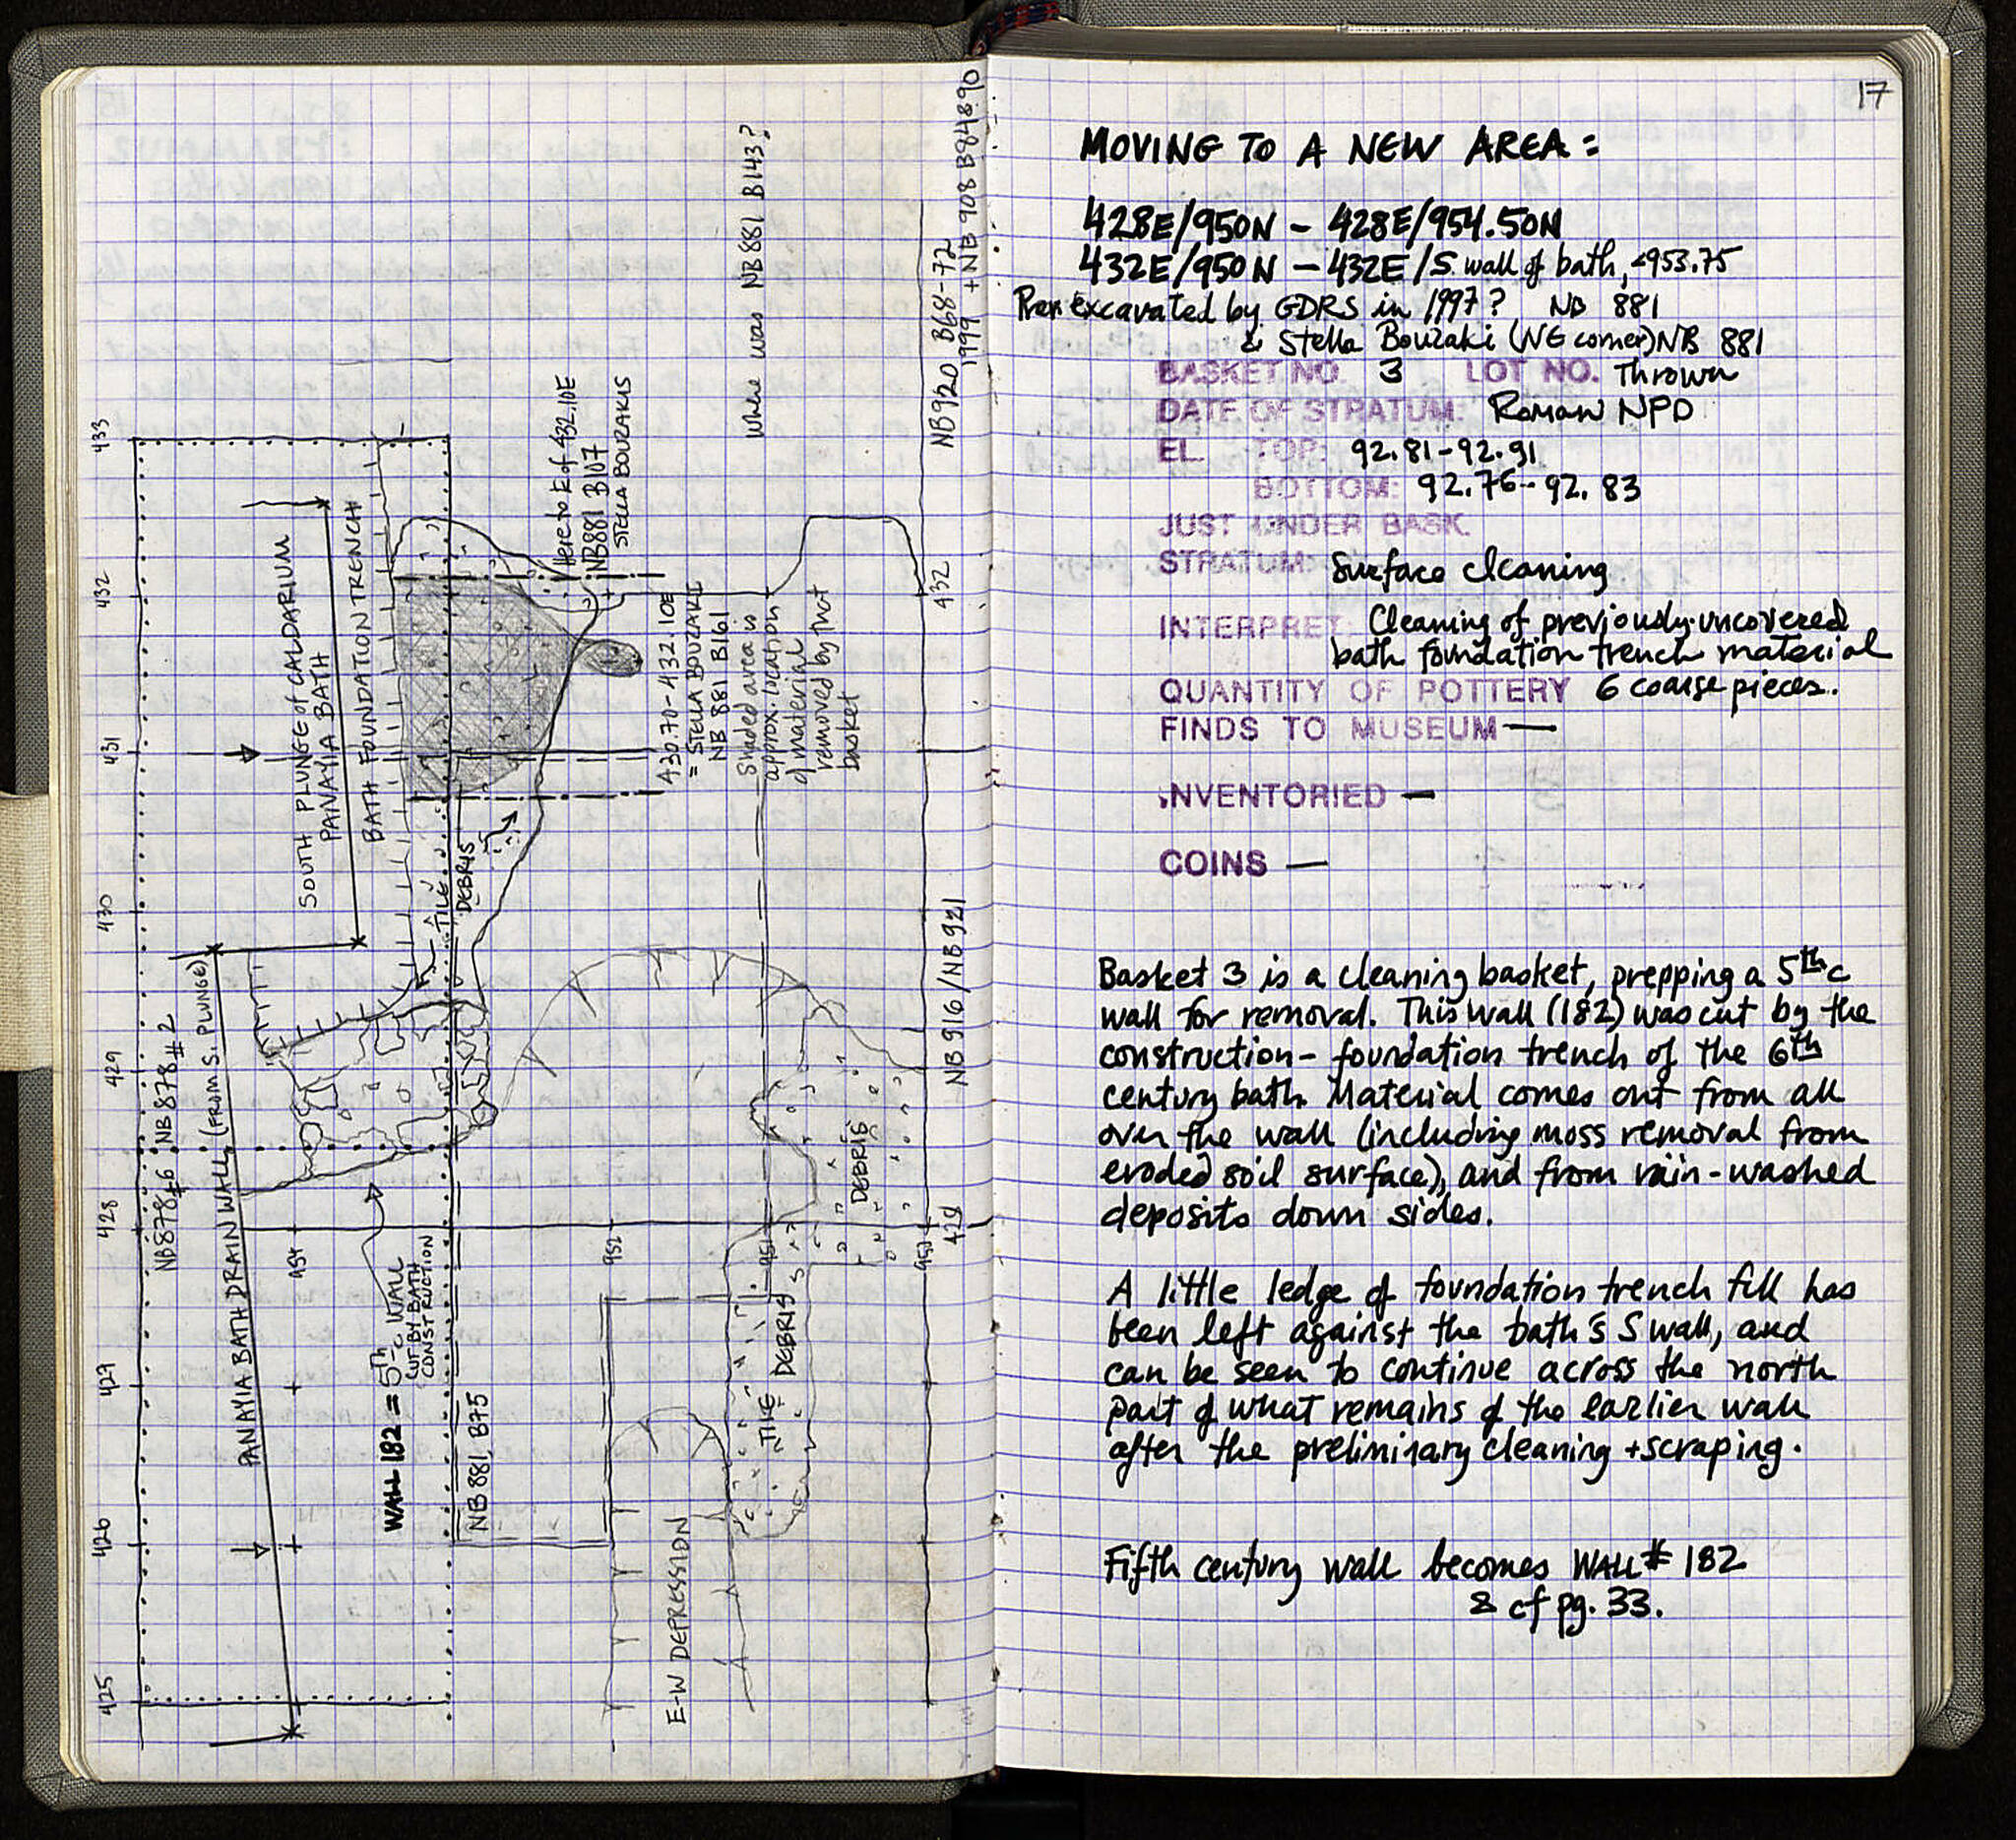 433
432
431
430
429
428
427
426
425
NB878#6 NB878#2
PANAYIA BATH DRAIN WALL (FROM S. PLUNGE)
SOUTH PLUNGE of CALDARIUM
PANAYIA BATH
BATH FOUNDATION TRENCH
954
WALL 182 = 5th c WALL
CUT BY BATH
CONSTRUCTION
TILE
DEBRIS
NB881 B75
Here to E of 432.10E
NB881 B107
STELLA BOUZAKIS
952
430.70-432.10E
= STELLA BOUZAKI
NB 881 B161
Shaded area is
approx. location
of material
removed by that
basket
E-W DEPRESSION
Where was NB881 B143?
951
TILE DEBRIS
DEBRIS
950
432
NB920 B68-72
1999 + NB 908 B84890
NB916/NB921
17
MOVING TO A NEW AREA:
428E/950N - 428E/954.50N
432E/950N - 432E/S. wall of bath, <953.75
excavated by GDRS in 1997? NB 881
& Stella Bouzaki (NE corner) NB 881
BASKET NO. 3 LOT NO. Thrown
DATE OF STRATUM: Roman NPD
EL. TOP: 92.81-92.91
BOTTOM: 92.76-92.83
JUST UNDER BASK.
STRATUM: Surface cleaning
INTERPRET: Cleaning of previously-uncovered
bath foundation trench material
QUANTITY OF POTTERY 6 coarse pieces.
FINDS TO MUSEUM —
INVENTORIED —
COINS —
Basket 3 is a cleaning basket, prepping a 5th c
wall for removal. This wall (182) was cut by the
construction- foundation trench of the 6th
century bath. Material comes out from all
over the wall (including moss removal from
eroded soil surface), and from rain-washed
deposits down sides.
A little ledge of foundation trench fill has
been left against the bath's S wall, and
can be seen to continue across the north
part of what remains of the earlier wall
after the preliminary cleaning + scraping.
Fifth century wall becomes WALL # 182
& cf pg. 33.